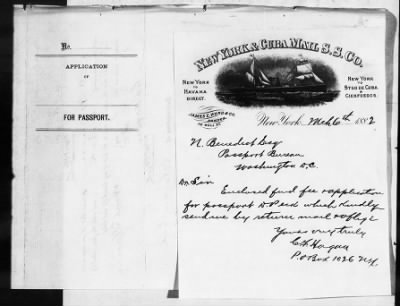 No.
APPLICATION
OF
FOR PASSPORT.
NEW YORK & CUBA MAIL S.S. CO.
NEW YORK
TO
HAVANA
DIRECT.
NEW YORK
TO
STGO DE CUBA
&
CIENFUEGOS.
JAMES E. WARD & CO.
New York, Mch 6th 1882
N. Benedict Esq
Passport Bureau
Washington D.C.
Dr Sir
Enclosed find fee & application
for passport which kindly
send me by return mail & oblige
Yours very truly
C.H. Hogan
P.O Box 1026 N.Y.